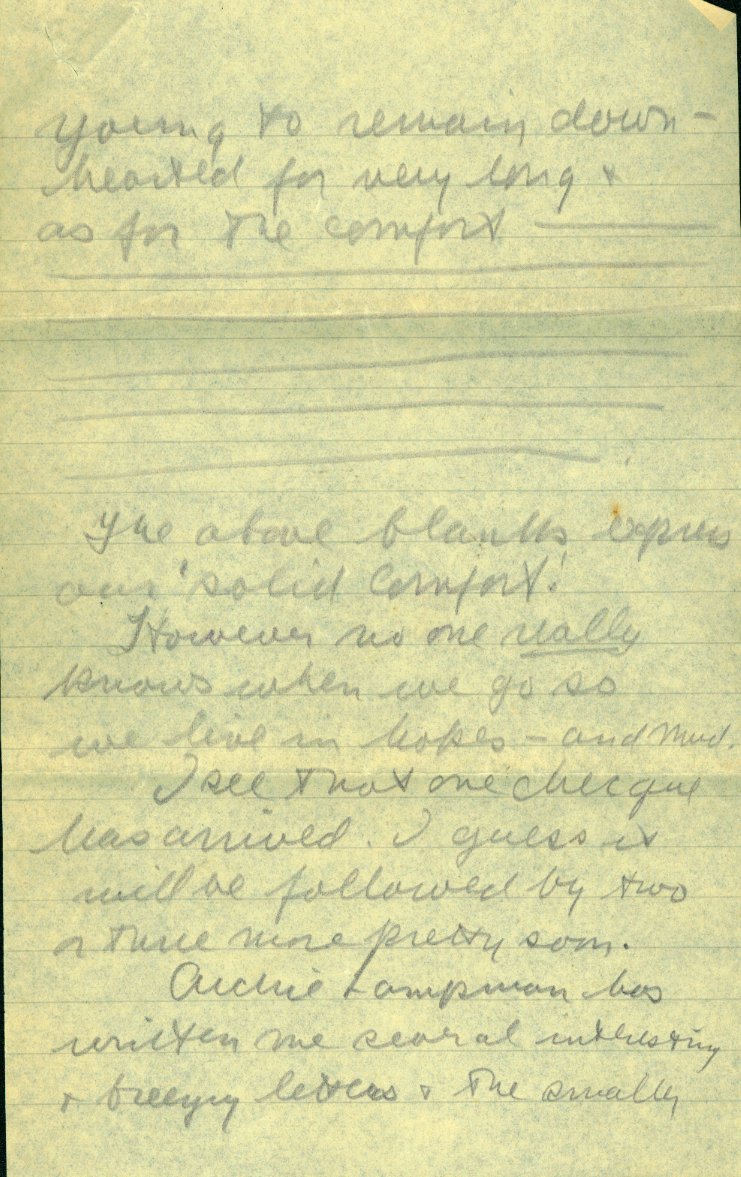 young to remain down-
hearted for very long &
as for the comfort
The above blanks express
our 'solid comfort'.
However no one really
knows when we go so
we live in hopes - and mud.
I see that one checque
has arrived. I guess it
will be followed by two
or three more pretty soon.
Archie Lampman has
written me several interesting
& breezy letters & the